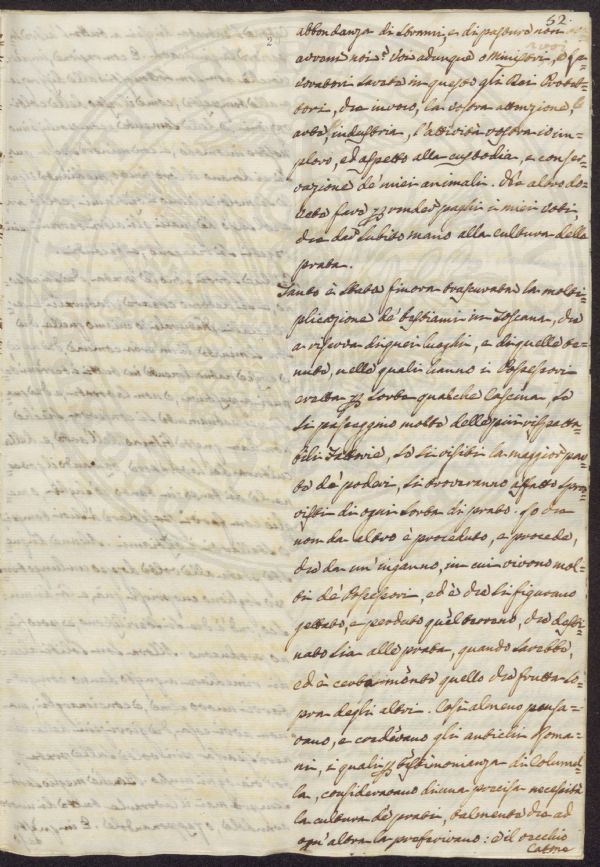 52.
abbondanza di strami, e di pasture non
avremi noi? Voi adunque o Ministri, e La=
voratori sarete in questo gli Rei Protet=
tori, che invero, la vostra attenzione, l'
arte, l'industria, l'attività vostra io im=
ploro, ed aspetto alla custodia, e conser=
vazione de' miei animali. Nè altro do=
vete fare per render paghi i miei voti,
che dar subito mano alla cultura delle
prata.
Tanto è stata finora trascurata la molti=
plicazione de' bestiami in Toscana, che
a riserva di quei luoghi, e di quelle te=
nute, nelle quali hanno i Possessori
eretta per sorte qualche Cascina, se
si passeggino molte delle più rispetta=
bili Fattorie, se si visiti la maggior par=
te de' poderi, si troveranno affatto spro=
visti di ogni sorta di prato. Io che
non da altro è proceduto, e procede,
che da un' inganno, in cui vivono mol=
ti de' Possessori, ed è che si figurano
gettato, e perduto quel terreno, che desti=
nato sia alle prata, quando sarebbe,
ed è certamente quello che frutta so=
pra degli altri. Così almeno pensa=
vano, e credevano gli antichi Roma=
ni, i quali per testimonianza di Colume=
la, consideravano di una precisa necessità
la cultura de' prati, talmente che ad
ogn' altra la preferivano: e il vecchio
Catone